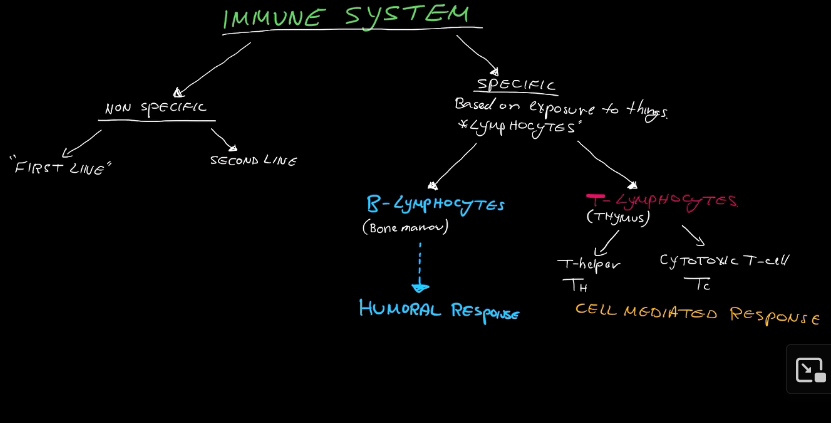 IMMUNE SYSTEM
NON SPECIFIC
"FIRST LINE"
SECOND LINE
SPECIFIC
Based on exposure to things.
*LYMPHOCYTES"
B-LYMPHOCYTES
(Bone marrow)
HUMORAL RESPONSE
T-LYMPHOCYTES
(THYMUS)
T-helper
TH
CYTOTOXIC T-cell
Tc
CELL MEDIATED RESPONSE